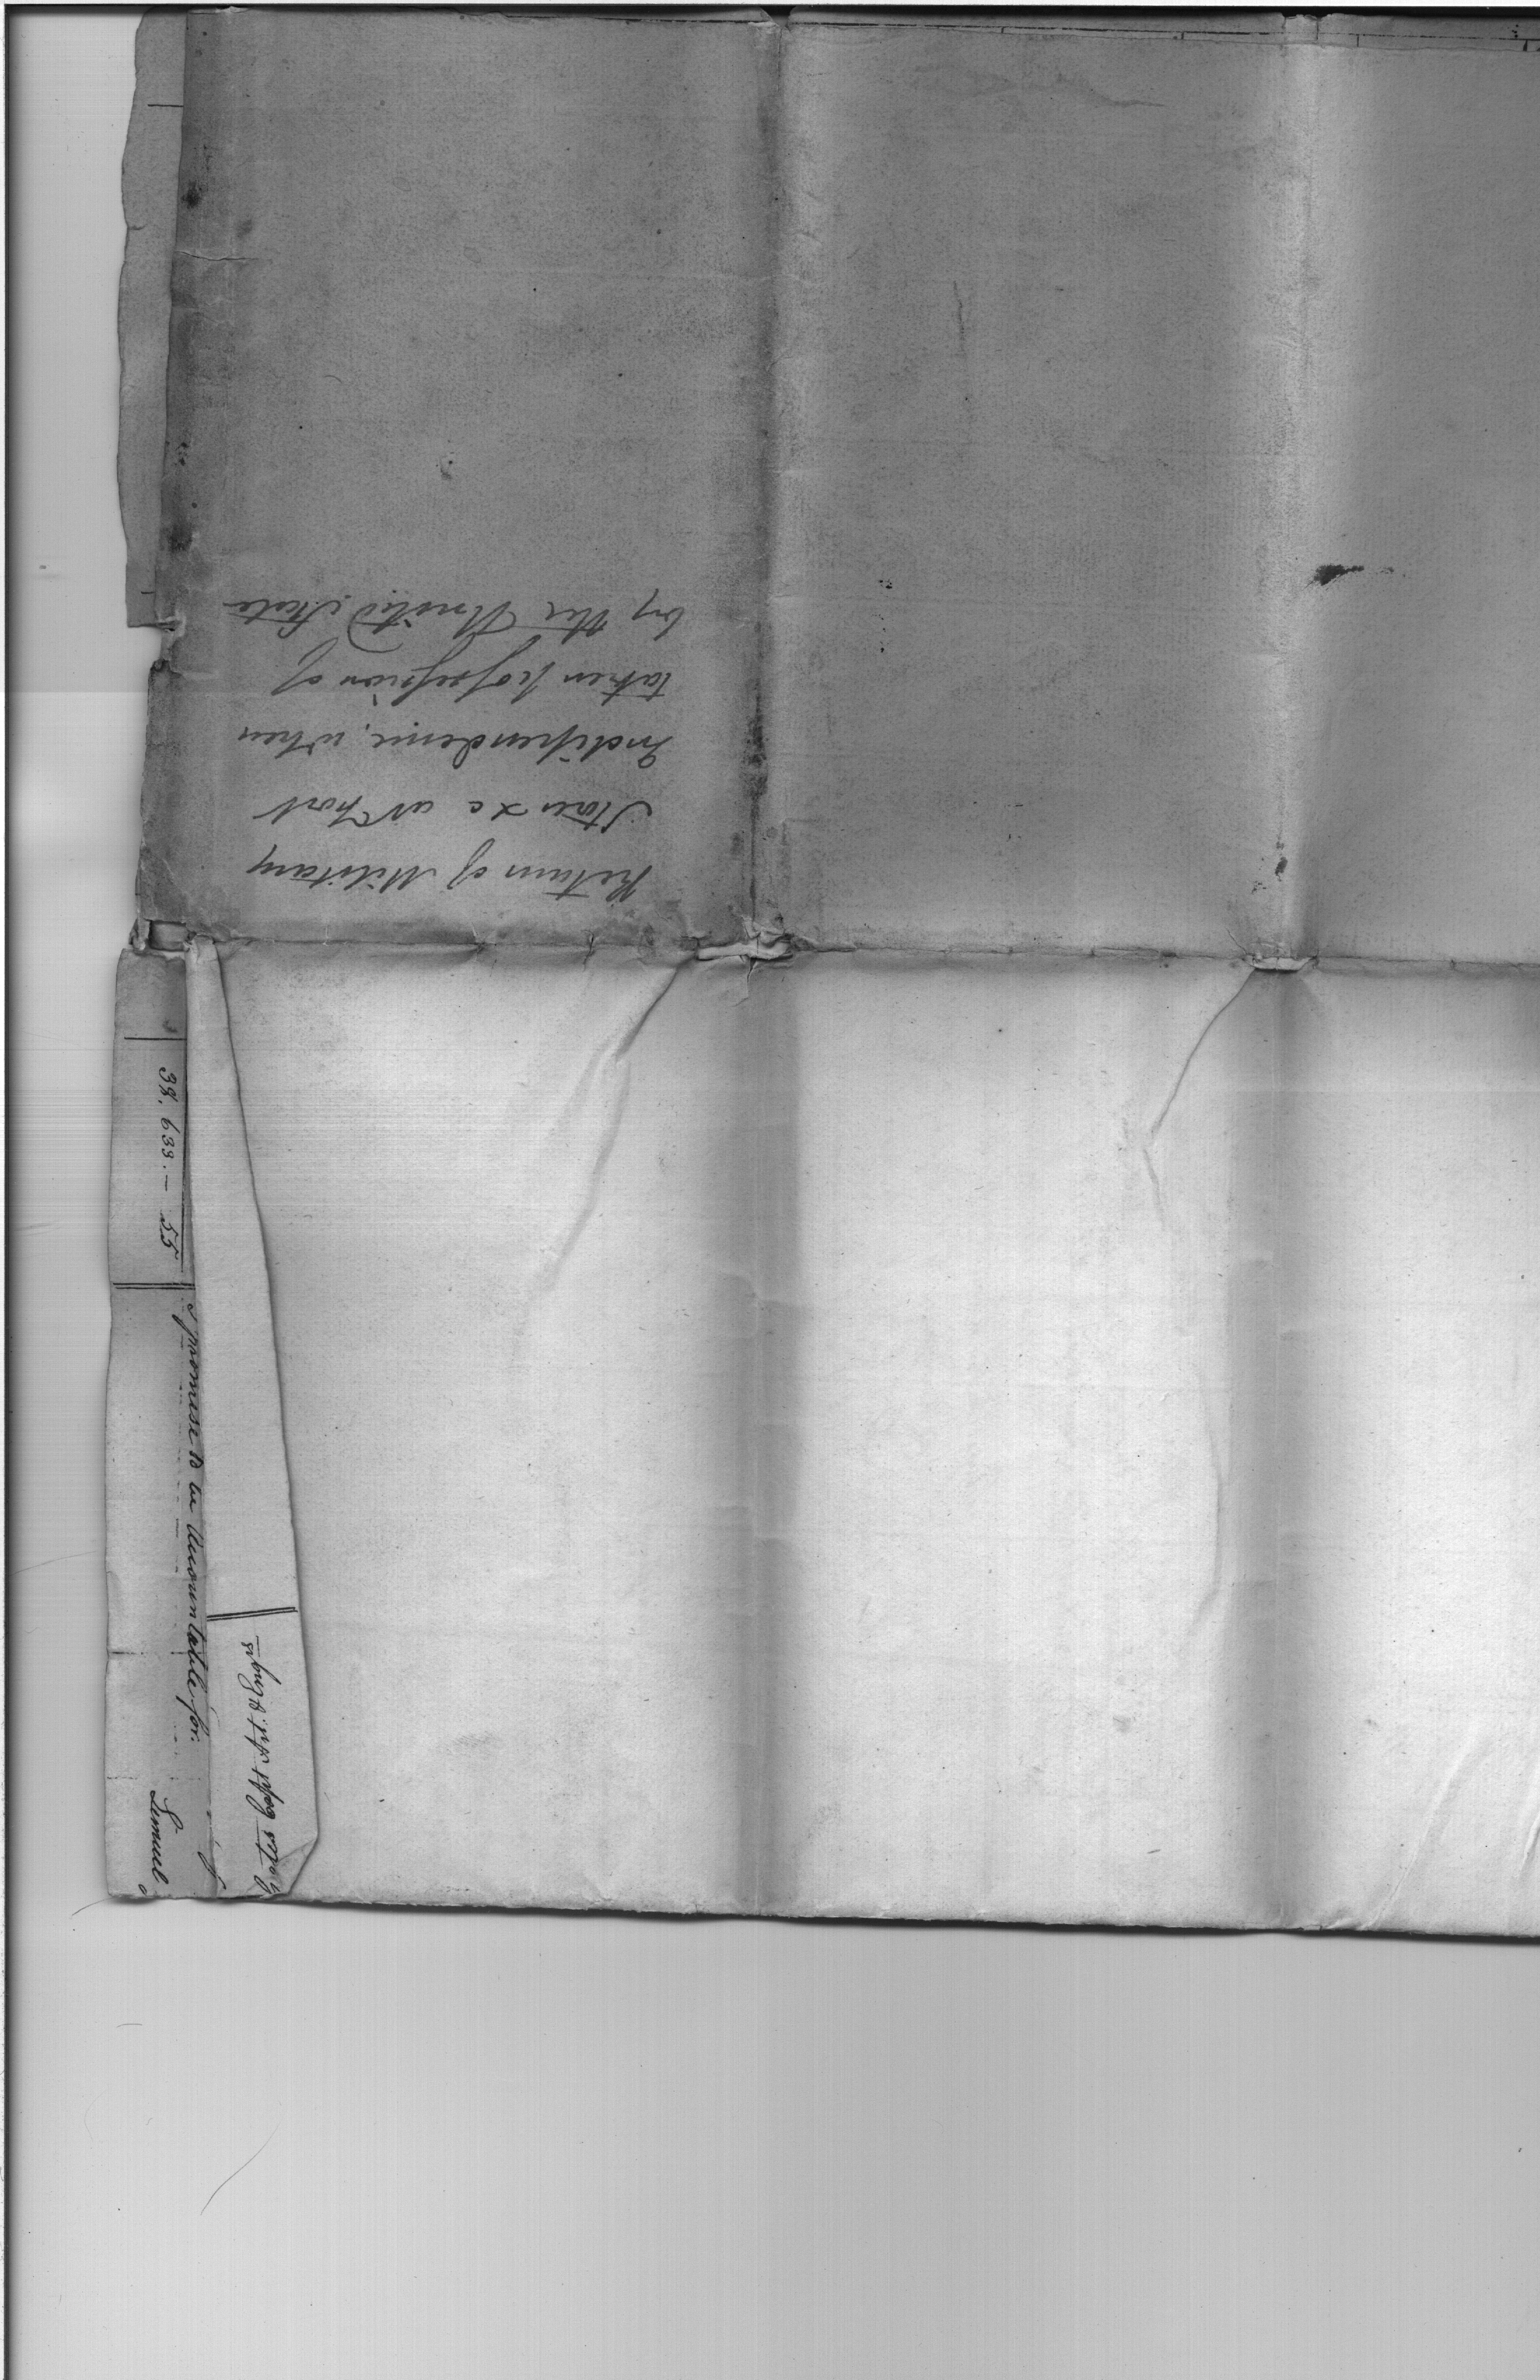 Return of Military
Stores &c at Fort
Independence, when
taken possession of
by the United States
38,633.— 55
I promise to be Accountable for.
Lemuel
Capt 2d Regt Art. & Engrs